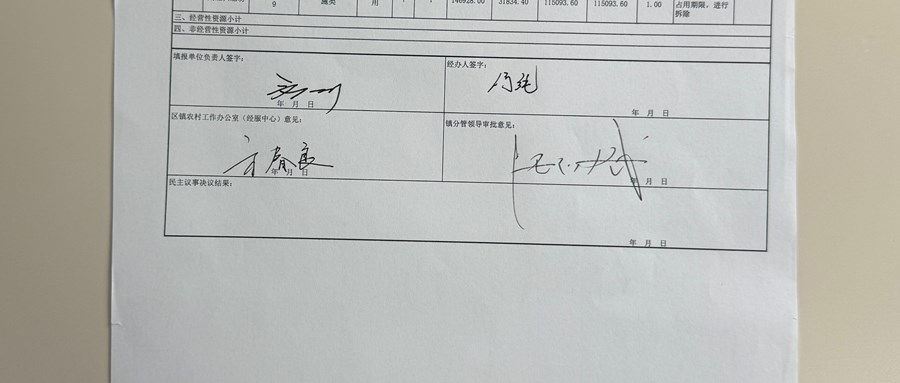 9 施类 用 146928.00 31834.40 115093.60 115093.60 1.00 占用期限，进行
拆除
三、经营性资源小计
四、非经营性资源小计
填报单位负责人签字：
年 月 日
经办人签字：
年 月 日
区镇农村工作办公室（经服中心）意见：
春良
年 月 日
镇分管领导审批意见：
年 月 日
民主议事决议结果：
年 月 日